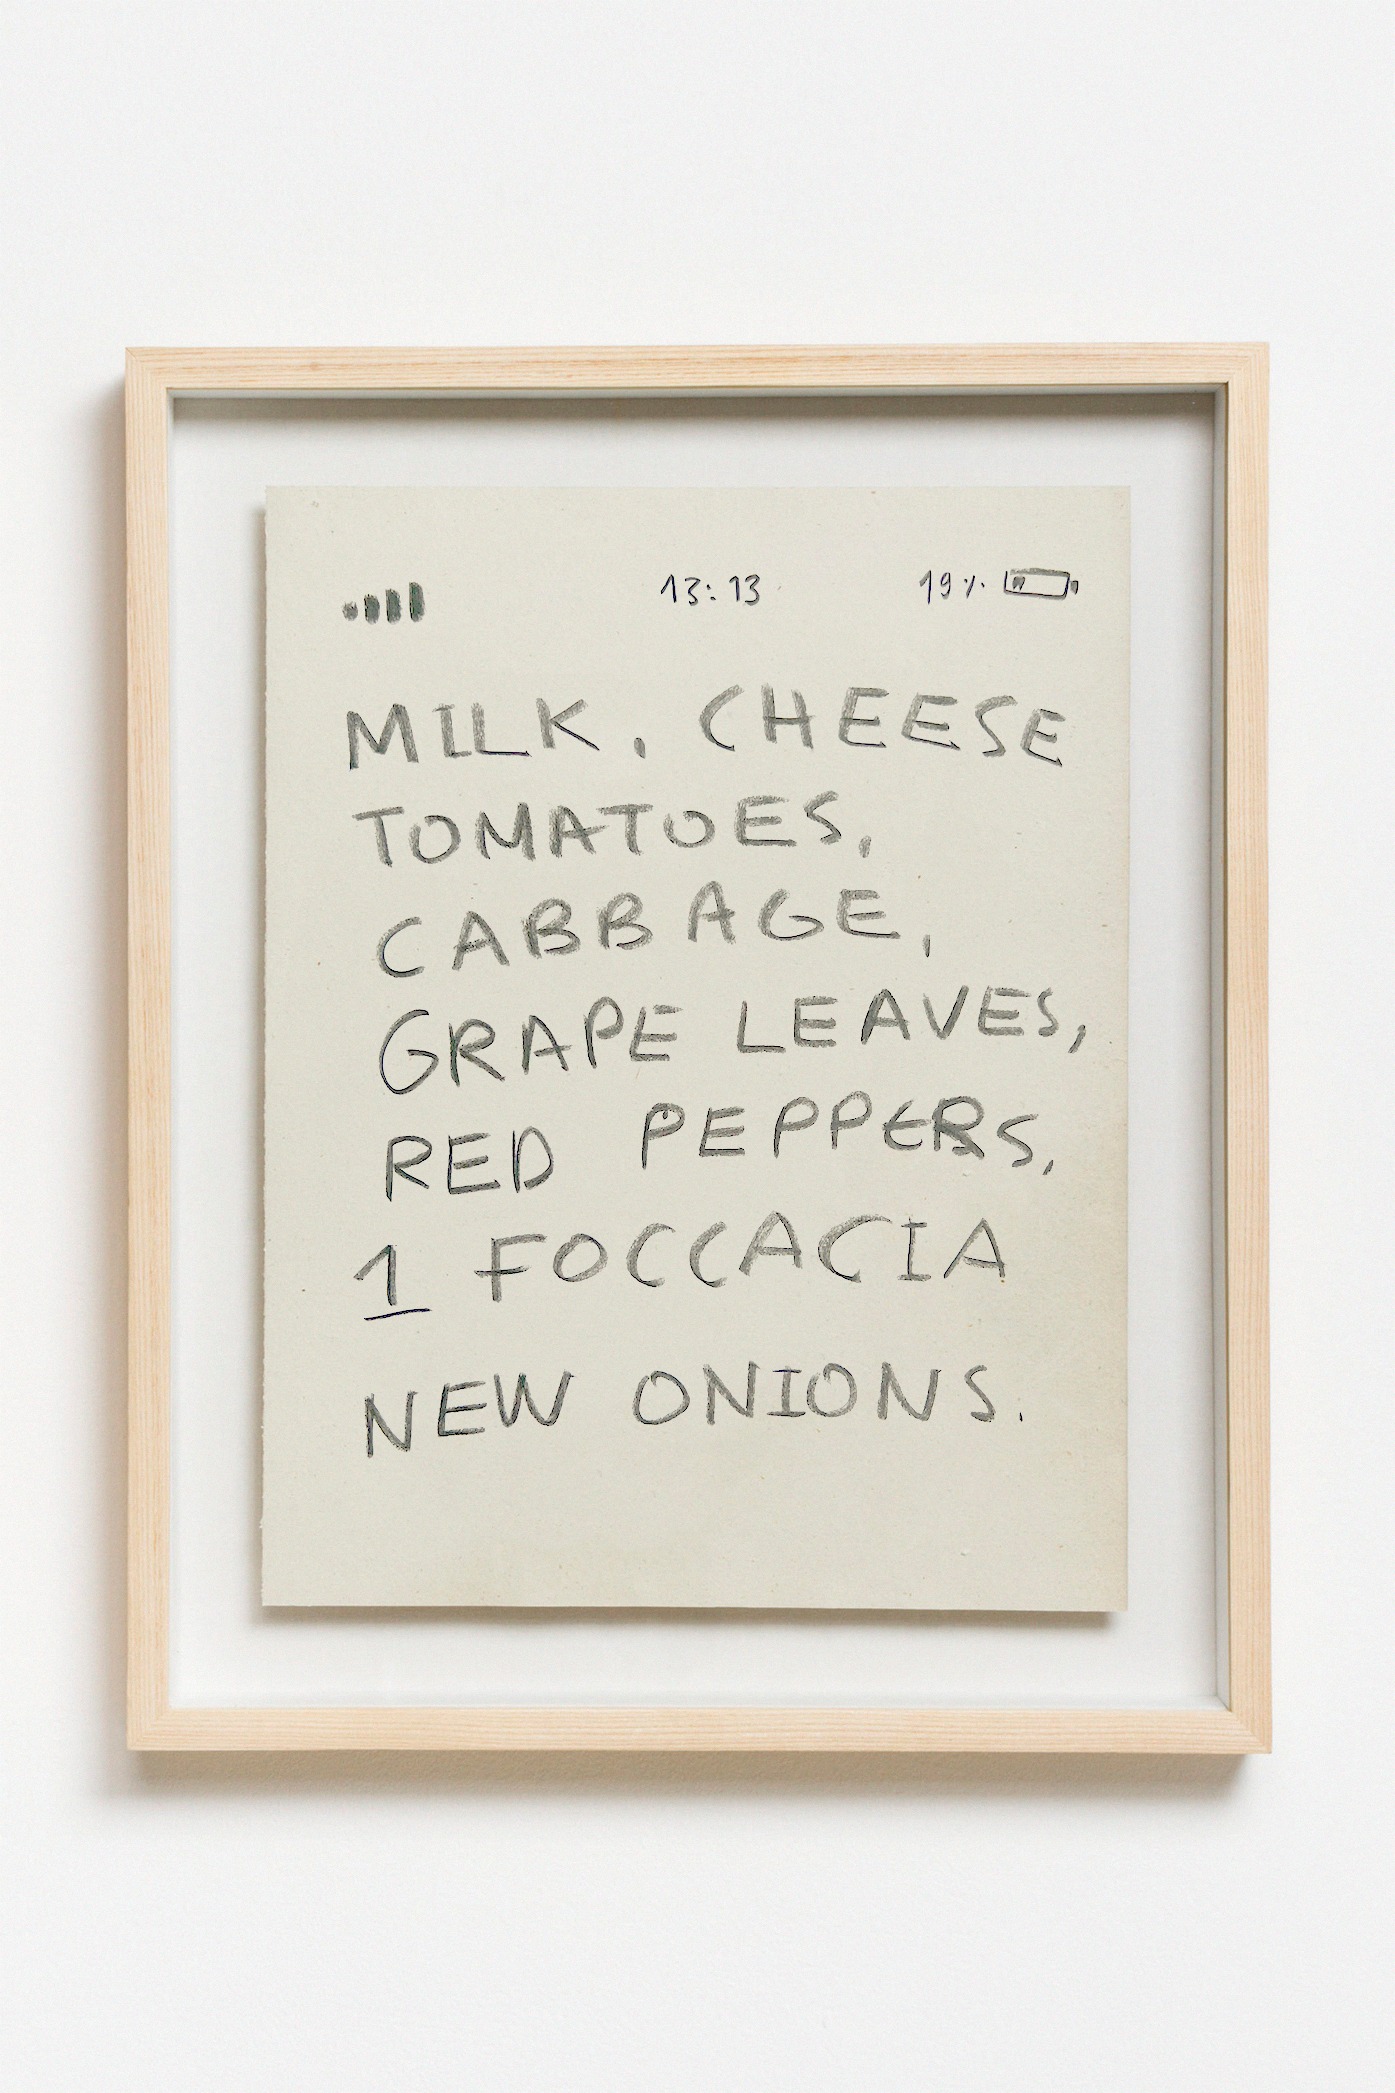 13:13 19%
MILK, CHEESE
TOMATOES,
CABBAGE,
GRAPE LEAVES,
RED PEPPERS,
1 FOCCACIA
NEW ONIONS.